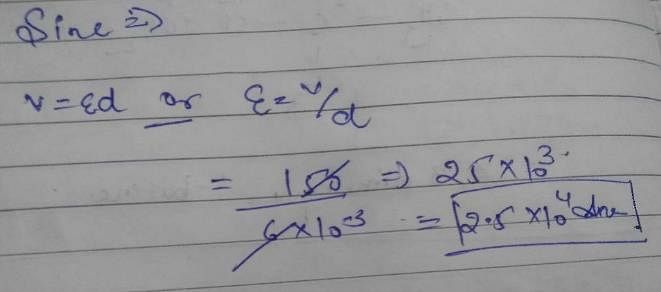 Sine =>
v = Ed or E = v/d
= 150 / 6×10-3 => 25×10³
= 2.5×10⁴